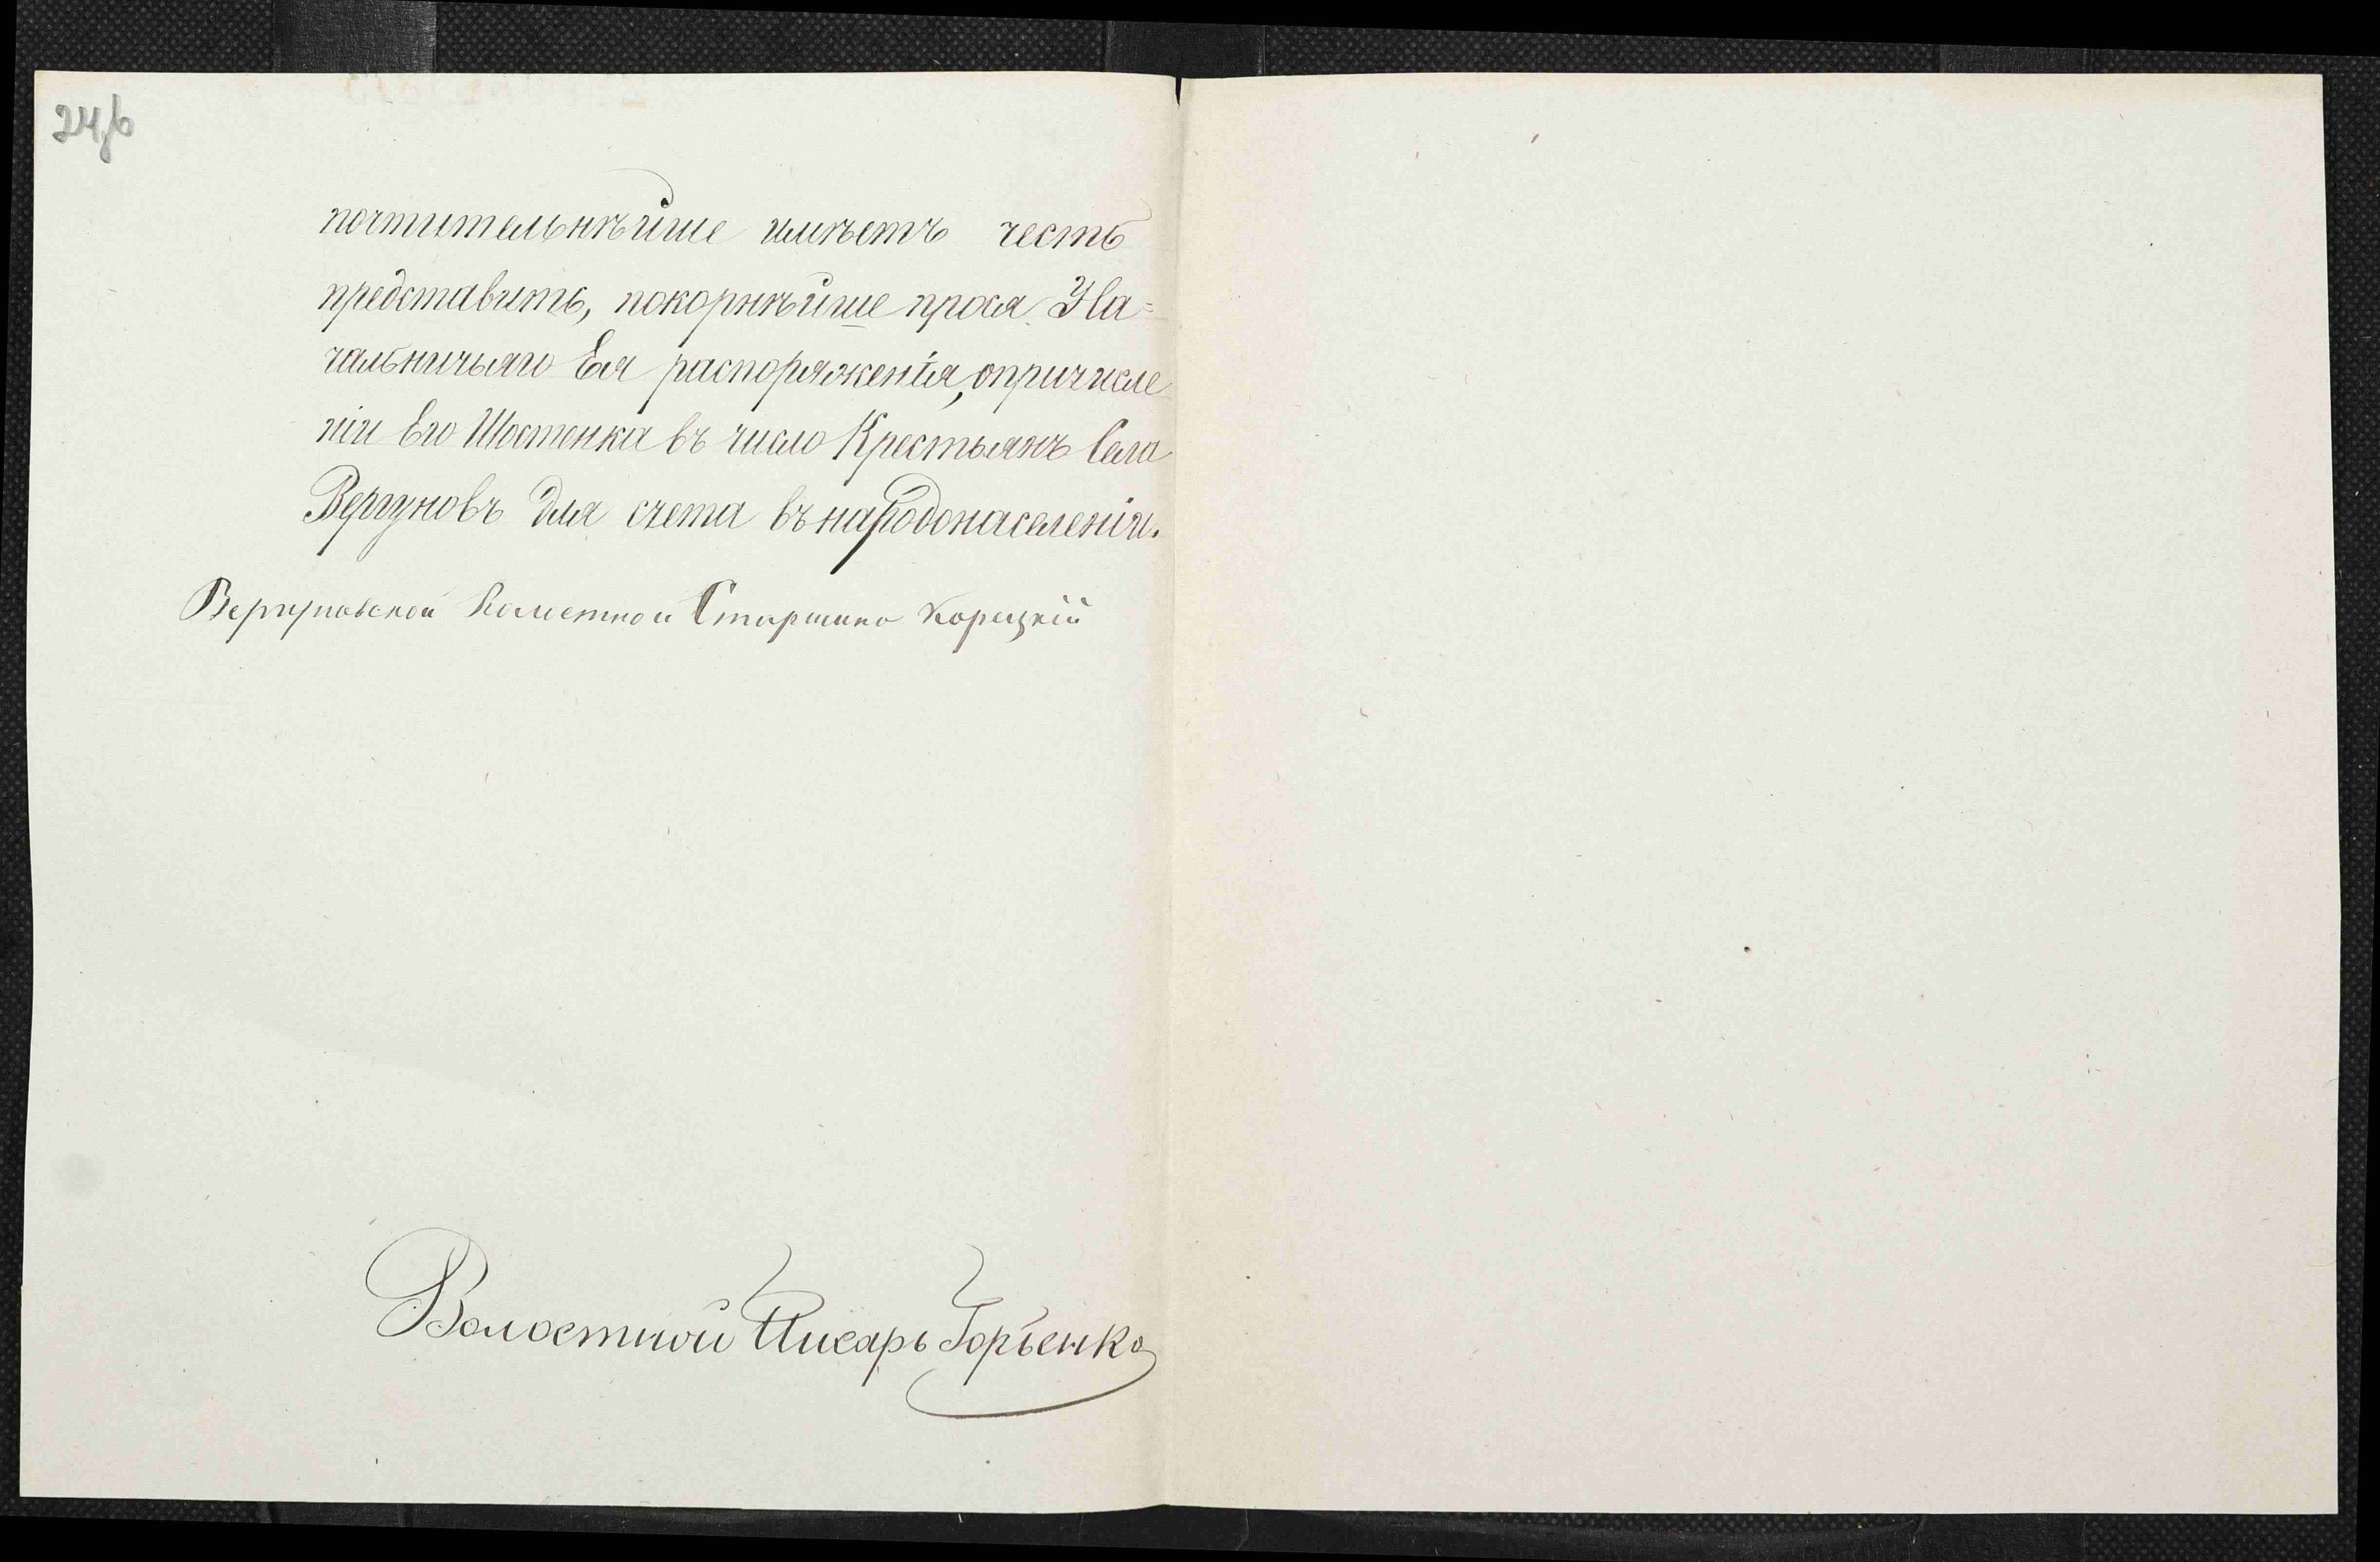 почтительнѣйше имѣетъ честь
представить, покорнѣйше прося На=
чальничьяго Ея распоряженія, опричисле
ніи Его Шостенка въ число Крестьянъ Села
Вергуновъ для счета въ народонаселеніи.
Вергуновской Волостной Старшина Корецкій
Волостной Писарь Горъенко